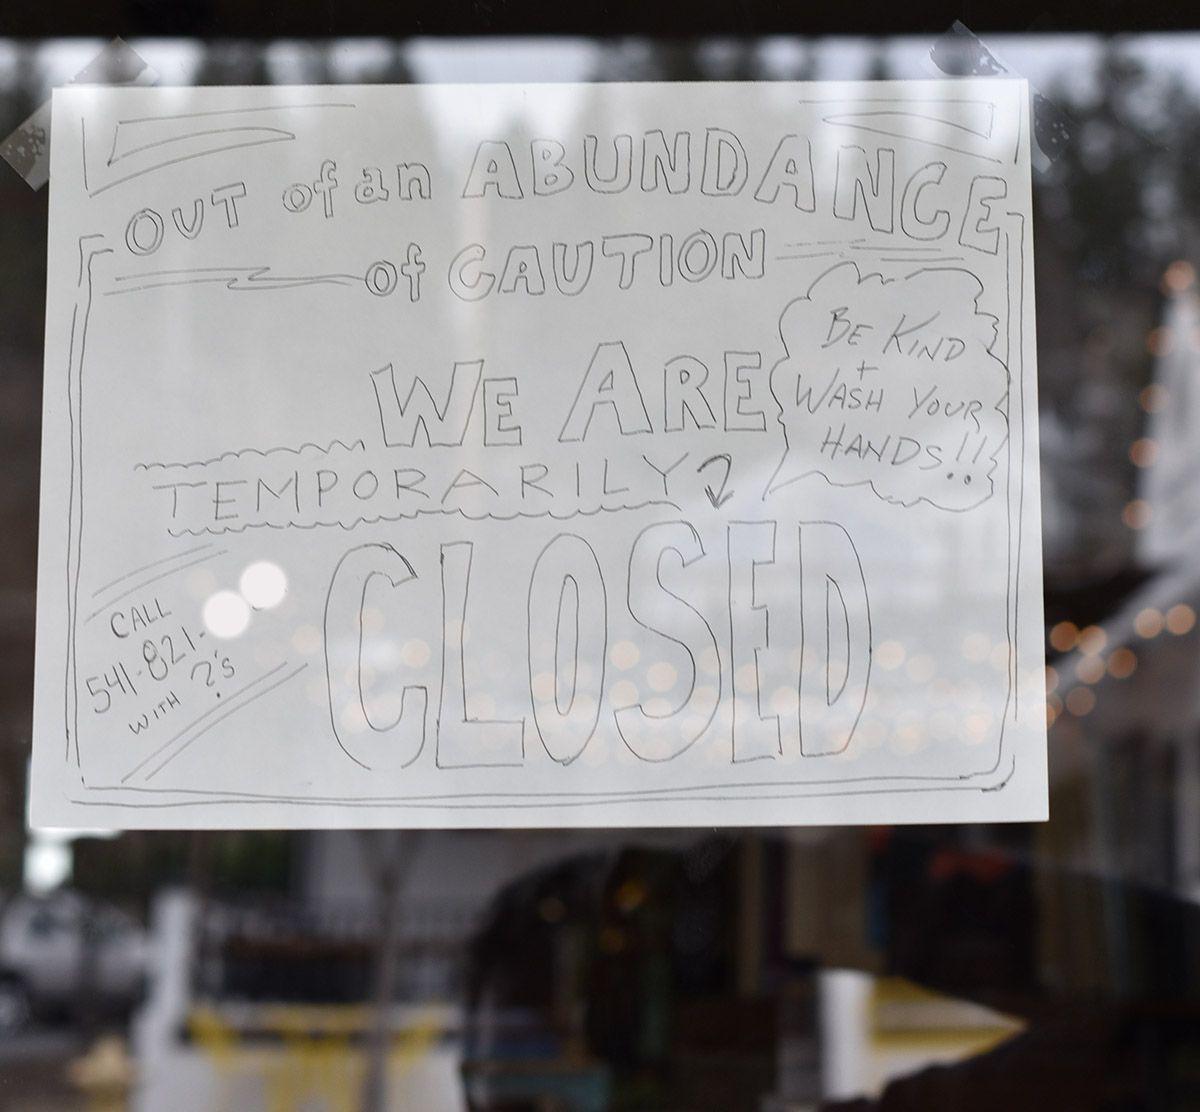 OUT of an ABUNDANCE
of CAUTION
WE ARE
TEMPORARILY
CLOSED
BE KIND
+
WASH YOUR
HANDS!!
CALL
541-821-
WITH ?'S